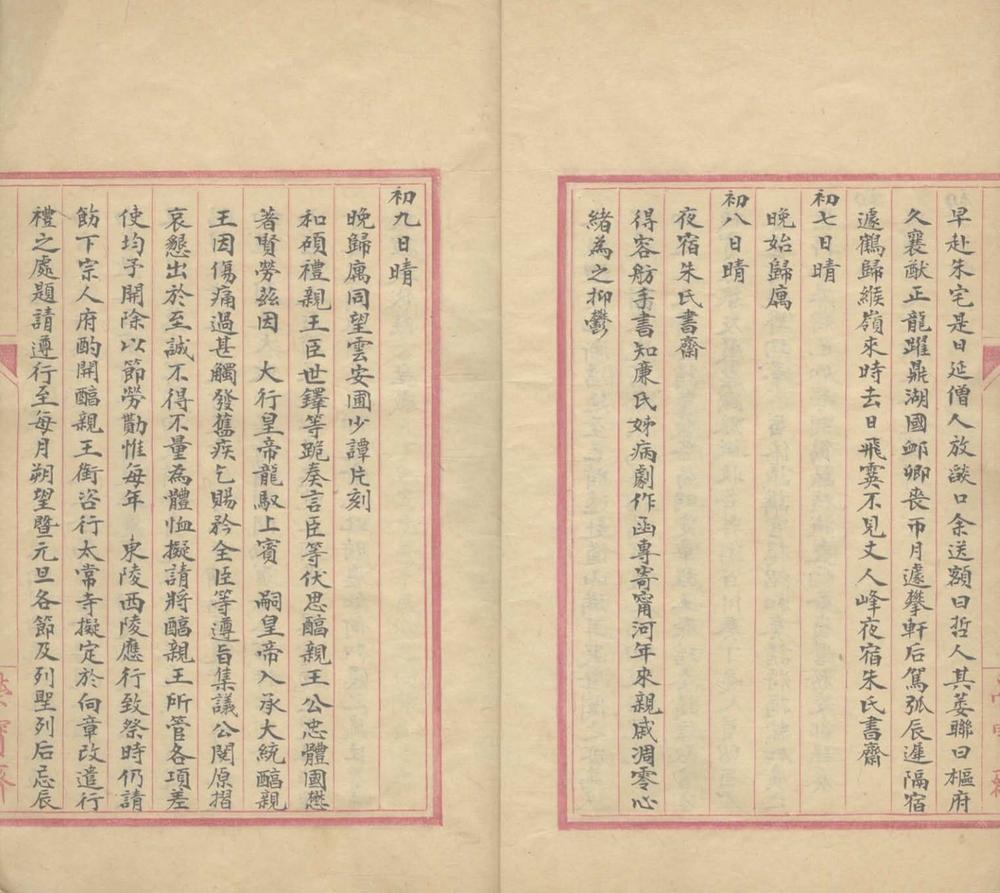 早赴朱宅是日延僧人放燄口余送額曰哲人其萎聯曰樞府
久襄猷正龍躍鼎湖國卹卿喪帀月遽攀軒后駕弧辰遲隔宿
遽鶴歸緱嶺來時去日飛霙不見丈人峰夜宿朱氏書齋
初七日晴
晚始歸寓
初八日晴
夜宿朱氏書齋
得容舫手書知廉氏姊病劇作函專寄甯河年來親戚凋零心
緒為之抑鬱
初九日晴
晚歸寓同望雲安圃少譚片刻
和碩禮親王臣世鐸等跪奏言臣等伏思醕親王公忠體國懋
著賢勞茲因 大行皇帝龍馭上賓 嗣皇帝入承大統醕親
王因傷痛過甚觸發舊疾乞賜矜全臣等遵旨集議公閱原摺
哀懇出於至誠不得不量為體恤擬請將醕親王所管各項差
使均予開除以節勞勩惟每年 東陵西陵應行致祭時仍請
飭下宗人府酌開醕親王銜咨行太常寺擬定於向章改遣行
禮之處題請遵行至每月朔望暨元旦各節及列聖列后忌辰